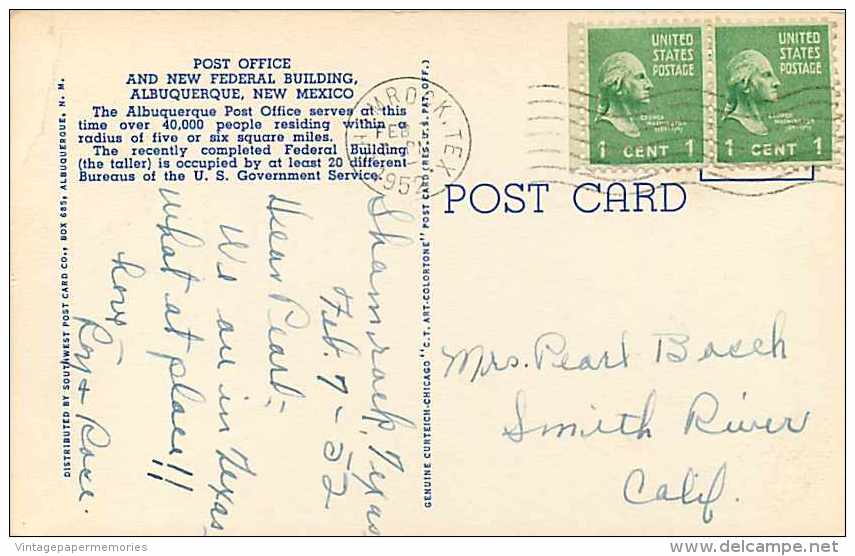 POST OFFICE
AND NEW FEDERAL BUILDING,
ALBUQUERQUE, NEW MEXICO
The Albuquerque Post Office serves at this
time over 40,000 people residing within a
radius of five or six square miles.
The recently completed Federal Building
(the taller) is occupied by at least 20 different
Bureaus of the U. S. Government Service.
DISTRIBUTED BY SOUTHWEST POST CARD CO., BOX 685, ALBUQUERQUE, N. M.
Shamrock, Texas
Feb. 7-52
Dear Pearl;
We are in Texas
what a place!!
Love
Roy & Rose.
GENUINE CURTEICH-CHICAGO "C.T. ART-COLORTONE" POST CARD (REG. U.S. PAT. OFF.)
MROCK, TEX
FEB
1952
UNITED
STATES
POSTAGE
GEORGE
WASHINGTON
1 CENT 1
UNITED
STATES
POSTAGE
GEORGE
WASHINGTON
1 CENT 1
POST CARD
Mrs. Pearl Bosch
Smith River
Calif.
Vintagepapermemories
delcampe.net